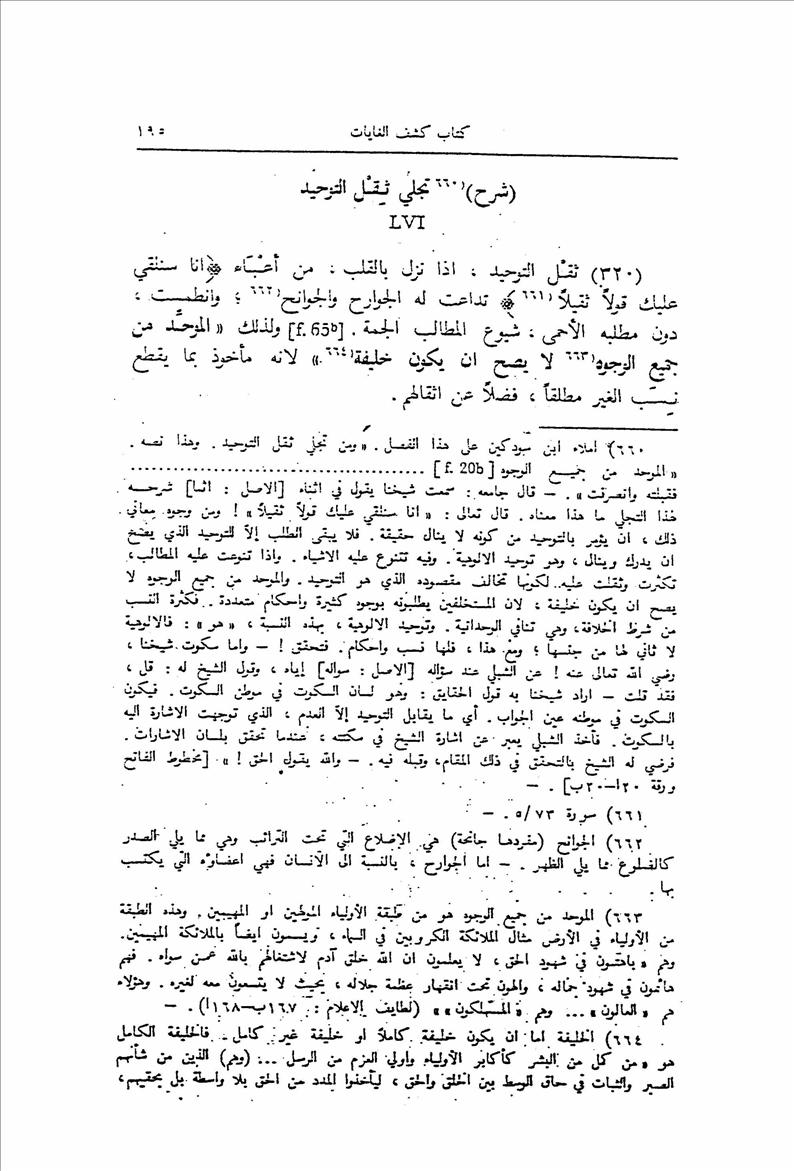 كتاب كشف الغايات ١٩٥
(شرح)٦٦٠) تجلّي ثِقَل التوحيد
LVI
(٣٢٠) ثقل التوحيد ، اذا نزل بالقلب ، من أعباء ﴿انا سنلقي
عليك قولاً ثقيلاً٦٦١)﴾ تداعت له الجوارح والجوانح٦٦٢) ؛ وانطمست ،
دون مطلبه الأحمى ، شيوع المطالب الجمة . [f. 65b] ولذلك « الموحّد من
جميع الوجوه٦٦٣) لا يصح ان يكون خليفة٦٦٤) » لانه مأخوذ بما يقطع
نِسَب الغير مطلقاً ، فضلاً عن اثقالهم .
٦٦٠) املاء ابن سودكين على هذا الفصل . « ومن تجلي ثقل التوحيد . وهذا نصه .
« الموحد من جميع الوجوه [f. 20b] ........................................
فقبلته وانصرفت » . – قال جامعه : سمعت شيخنا يقول في اثناء [الاصل : اثنا] شرحه
لهذا التجلي ما هذا معناه . قال تعالى : « انا سنلقي عليك قولاً ثقيلاً » ! ومن وجوه معاني
ذلك ، ان يؤمر بالتوحيد من كونه لا ينال حقيقة . فلا يبقى الطلب إلاّ للتوحيد الذي يصح
ان يدرك وينال ، وهو توحيد الالوهية . وفيه تتنوع عليه الاشياء . واذا تنوعت عليه المطالب ،
تكثرت وثقلت عليه لكونها تخالف مقصوده الذي هو التوحيد . والموحد من جميع الوجوه لا
يصح ان يكون خليفة ، لان المستخلفين يطلبونه بوجوه كثيرة واحكام متعددة . فكثرة النسب
من شرط الخلافة ، وهي تنافي الوحدانية . وتوحيد الالوهية ، بهذه النسبة ، « هو » : فالالوهية
لا ثاني لها من جنسها ؛ ومع هذا ، فلها نسب واحكام . فتحقق ! – واما سكوت شيخنا ،
رضي الله تعالى عنه ! عن الشبلي عند سؤاله [الاصل : سواله] إياه ، وقول الشيخ له : قل ،
فقد قلت – اراد شيخنا به قول الحقايق : وهو لسان السكوت في موطن السكوت . فيكون
السكوت في موطنه عين الجواب . أي ما يقابل التوحيد إلاّ العدم ، الذي توجهت الاشارة اليه
بالسكوت . فأخذ الشبلي يعبر عن اشارة الشيخ في سكتته ، عندما تحقق بلسان الاشارات .
فرضي له الشيخ بالتحقق في ذلك المقام ، وقبله فيه . – والله يقول الحق ! » [مخطوط الفاتح
ورقة ٢٠ا–٢٠ب] . –
٦٦١) سورة ٥/٧٣ . –
٦٦٢) الجوانح (مفردها جانحة) هي الاضلاع التي تحت الترائب وهي مما يلي الصدر
كالضلوع مما يلي الظهر . – اما الجوارح ، بالنسبة الى الانسان فهي اعضاؤه التي يكتسب
بها .
٦٦٣) الموحد من جميع الوجوه هو من طبقة الأولياء المولهين او المهيمين . وهذه الطبقة
من الأولياء في الأرض مثال الملائكة الكروبين في السماء ، ويسمون ايضاً بالملائكة المهيمين .
وهم « باهتون في شهود الحق ، لا يعلمون ان الله خلق آدم لاشتغالهم بالله عمن سواه . فهم
هائمون في شهود جماله ، والهون تحت انقهار عظمة جلاله ، بحيث لا يتسعون معه لغيره . وهؤلاء
هم « العالون » ... وهم « المستهلكون » » (لطايف الإعلام : ١٦٧ب–١٦٨ا) . –
٦٦٤) الخليفة اما ان يكون خليفة كاملاً او خليفة غير كامل . فالخليفة الكامل
هو « من كمل من البشر كأكابر الأولياء وأولي العزم من الرسل ... (وهم) الذين من شأنهم
الصبر والثبات في حاق الوسط بين الخلق والحق ، ليأخذوا المدد من الحق بلا واسطة بل بحقيهم ،